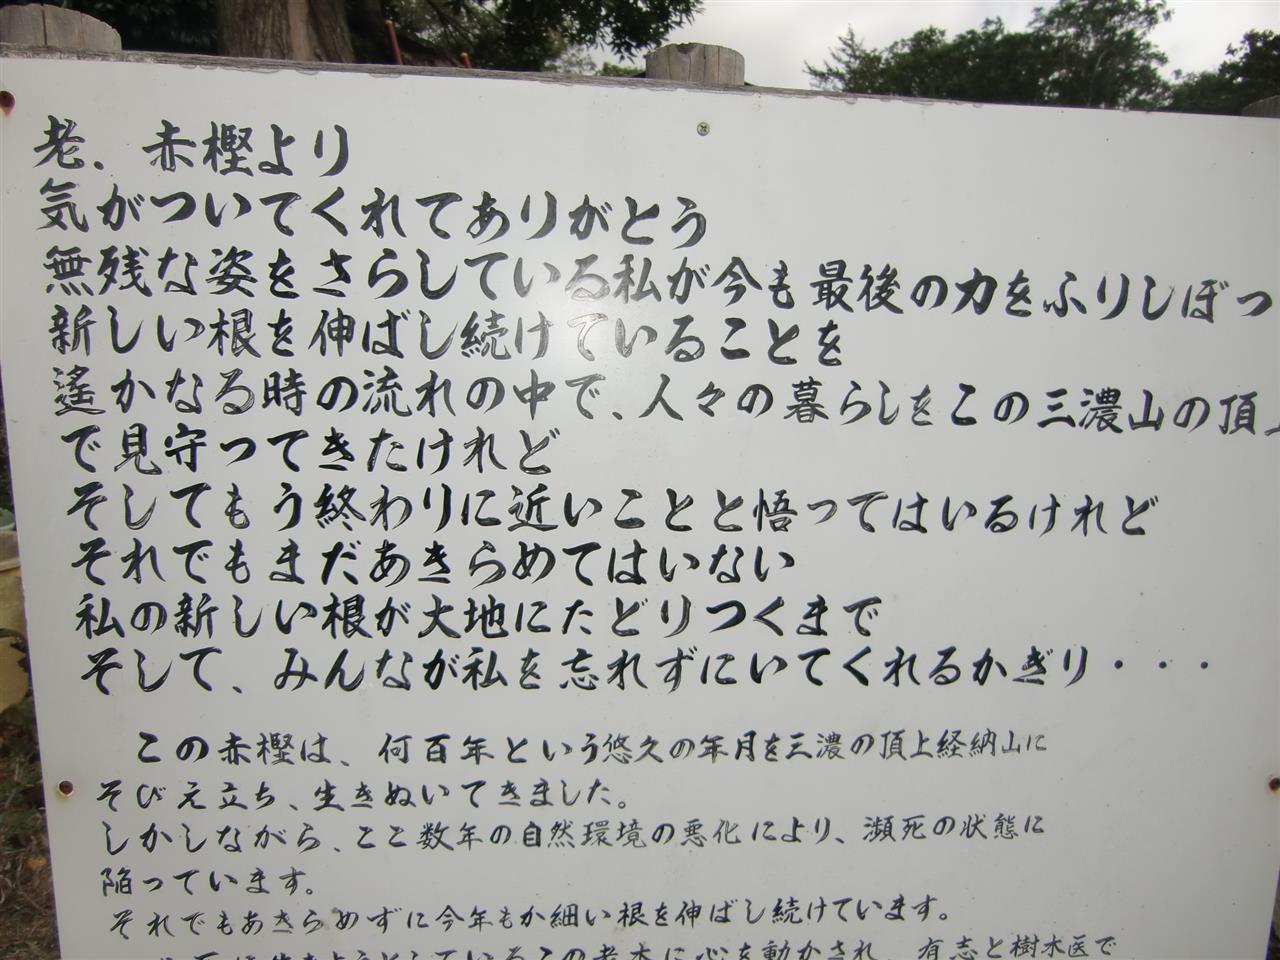 老、赤樫より
気がついてくれてありがとう
無残な姿をさらしている私が今も最後の力をふりしぼっ
新しい根を伸ばし続けていることを
遙かなる時の流れの中で、人々の暮らしをこの三濃山の頂上
で見守ってきたけれど
そしてもう終わりに近いことと悟ってはいるけれど
それでもまだあきらめてはいない
私の新しい根が大地にたどりつくまで
そして、みんなが私を忘れずにいてくれるかぎり・・・
この赤樫は、何百年という悠久の年月を三濃の頂上経納山に
そびえ立ち、生きぬいてきました。
しかしながら、ここ数年の自然環境の悪化により、瀕死の状態に
陥っています。
それでもあきらめずに今年もか細い根を伸ばし続けています。
ようとしているこの老木に心を動かされ、有志と樹木医で